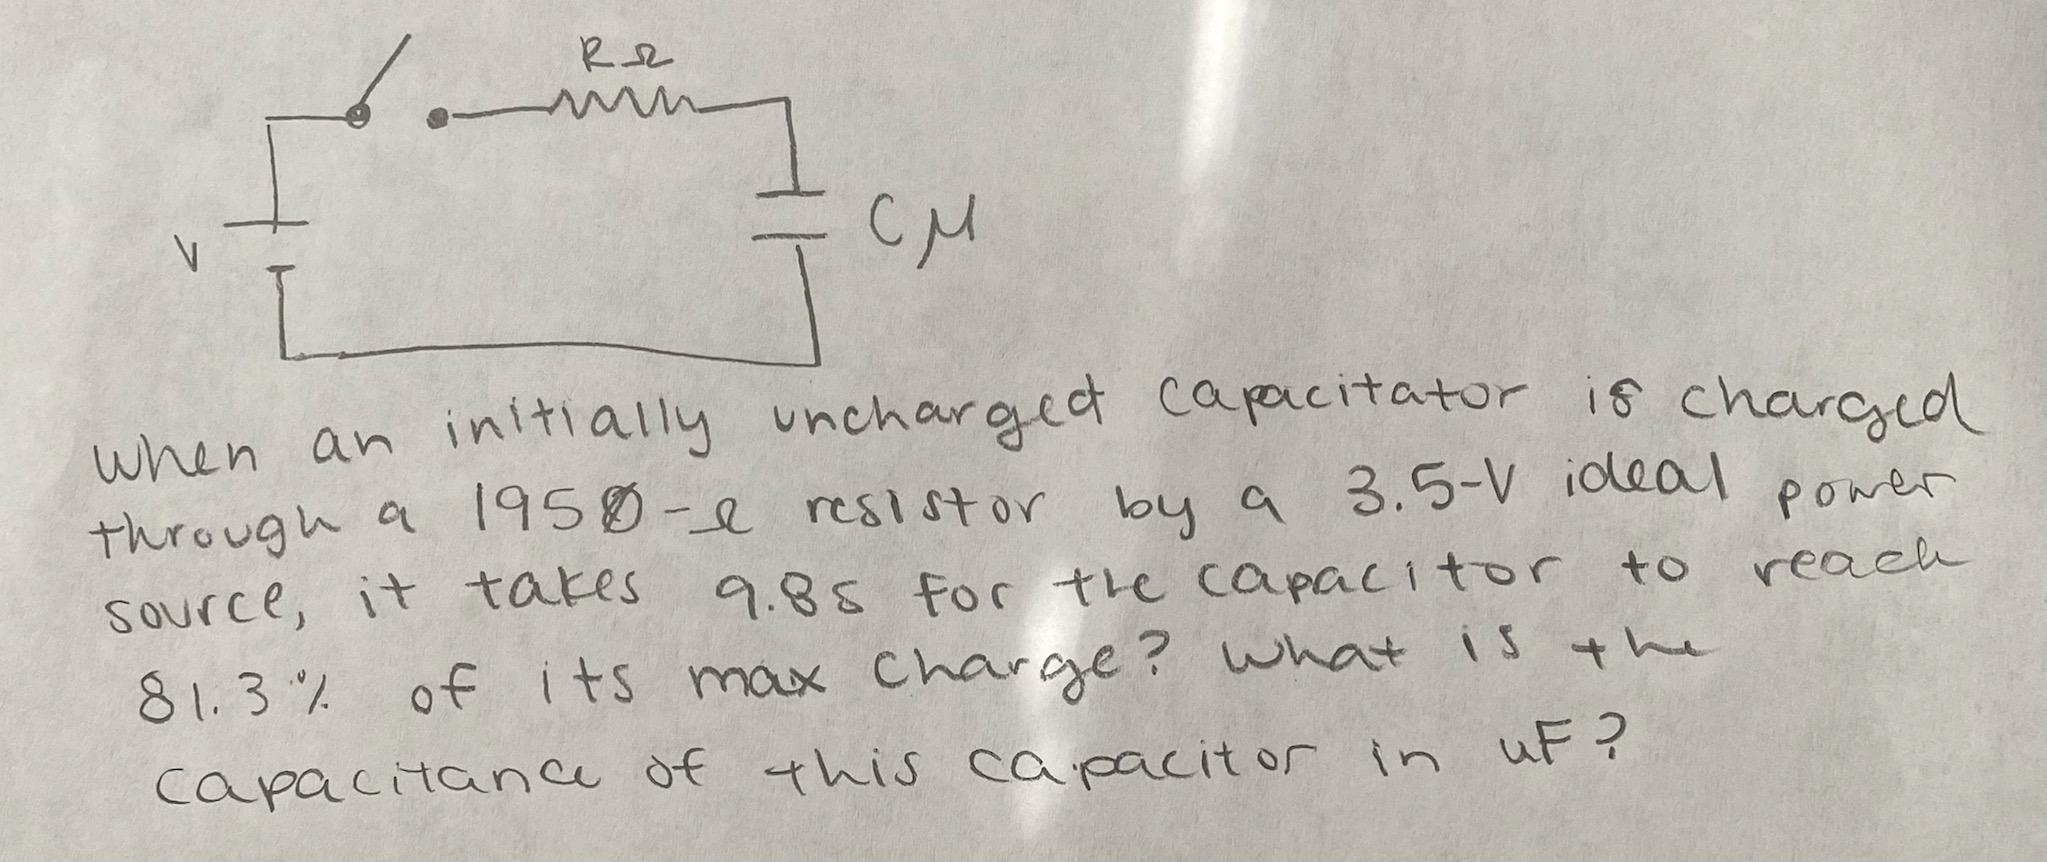 RΩ
V
Cμ
When an initially uncharged capacitator is charged
through a 1950-Ω resistor by a 3.5-V ideal power
source, it takes 9.8s for the capacitor to reach
81.3% of its max charge? What is the
capacitance of this capacitor in uF?